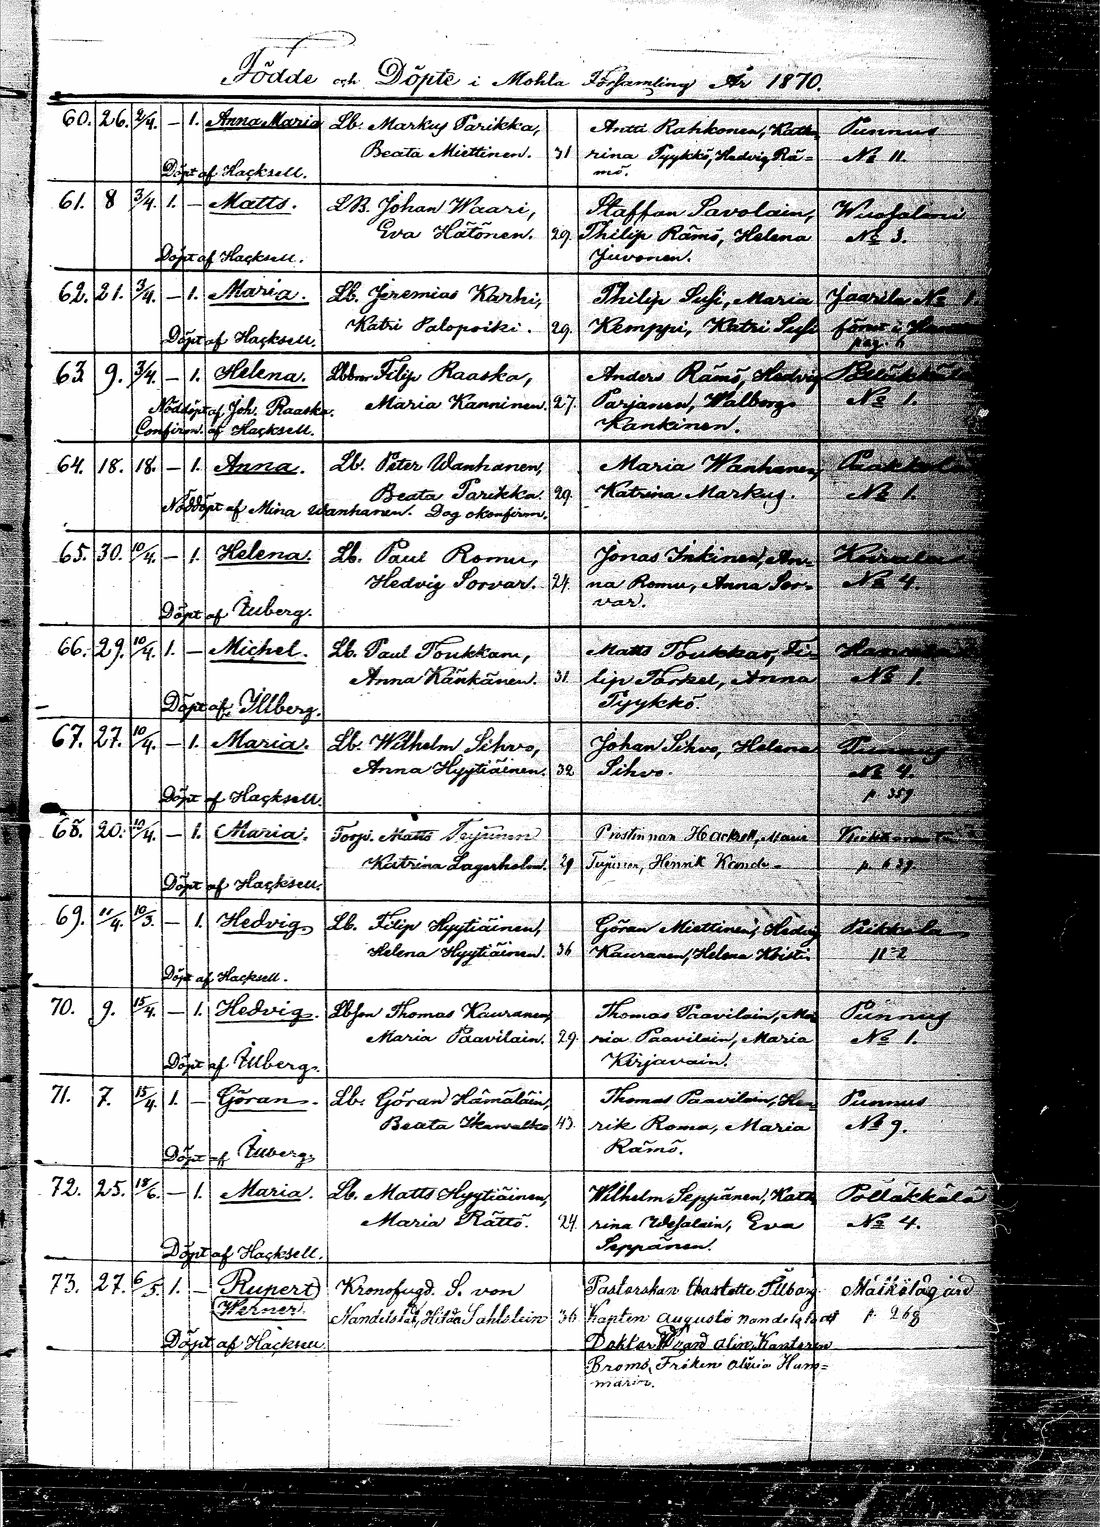 Födde och Döpte i Mohla Församling År 1870.
60. 26. 2/4. — 1. Anna Maria Lb. Markus Parikka, Antti Rahkonen, Kath- Punnus
Beata Miettinen. 31 rina Tyykkö, Hedvig Rä- No 11.
Döpt af Hacksell. mö.
61. 8 3/4. 1. — Matts. LB. Johan Waari, Staffan Savolain,
Eva Hätönen. 29. Philip Rämö, Helena No 3.
Döpt af Hacksell. Juvonen.
62. 21. 3/4. — 1. Maria. Lb. Jeremias Karhi, Philip Susi, Maria Jaarila No 1.
Katri Palopoiki. 29. Kemppi, Katri Susi
Döpt af Hacksell.
63. 9. 3/4. — 1. Helena. Filip Raaska, Anders Rämö, Hedvig
Nöddöpt af Joh. Raaska. Maria Kanninen. 27. Parjanen, Walborg No 1.
Confirm. af Hacksell. Kankinen.
64. 18. 18. — 1. Anna. Lb. Peter Wanhanen, Maria Wanhanen,
Beata Parikka. 29. Katrina Markus. No 1.
Nöddöpt af Mina Wanhanen. Dog okonfirm.
65. 30. 10/4. — 1. Helena. Lb. Paul Romu, Jonas Inkinen, An-
Hedvig Sorvar. 24. na Romu, Anna Sor- No 4.
Döpt af var.
66. 29. 10/4. 1. — Michel. Lb. Paul Toukkari, Matts Toukkar, Fi-
Anna Känkänen. 31. lip Torkel, Anna No 1.
Döpt af Tyykkö.
67. 27. 10/4. — 1. Maria. Lb. Wilhelm Sihvo, Johan Sihvo, Helena Punnus
Anna Hyytiäinen. 32 Sihvo. No 4.
Döpt af Hacksell. p. 359
68. 20. 10/4. — 1. Maria. Torp. Matts Prostinnan Hacksell,
Katrina Lagerholm. 29 Henrik
Döpt af Hacksell.
69. 11/4. 10/3. — 1. Hedvig Lb. Filip Hyytiäinen, Göran Miettinen, Hedvig Peikkola
Helena Hyytiäinen. 36 Kauranen, Helena
Döpt af Hacksell.
70. 9. 15/4. — 1. Hedvig. Lbson Thomas Kauranen, Thomas Paavilain, Ma- Punnus
Maria Paavilain. 29. ria Paavilain, Maria No 1.
Döpt af Kirjavain.
71. 7. 15/4. 1. — Göran. Lb. Göran Hämäläin, Thomas Paavilain, Hen- Punnus
Beata 43. rik Roma, Maria No 9.
Döpt af Rämö.
72. 25. 18/6. — 1. Maria. Lb. Matts Hyytiäinen, Wilhelm Seppänen, Kath- Pölläkkälä
Maria Rättö. 24. rina Wesalain, Eva No 4.
Döpt af Hacksell. Seppänen.
73. 27. 6/5. 1. — Rupert Kronofogd. S. von Pastorskan Charlotte
Werner. Nandelstadt, Hilda Sahlstein 36 Kapten Augusto Nandelstadt p. 268
Döpt af Hacksell Doktor
Broms, Fröken Ham-
marin.